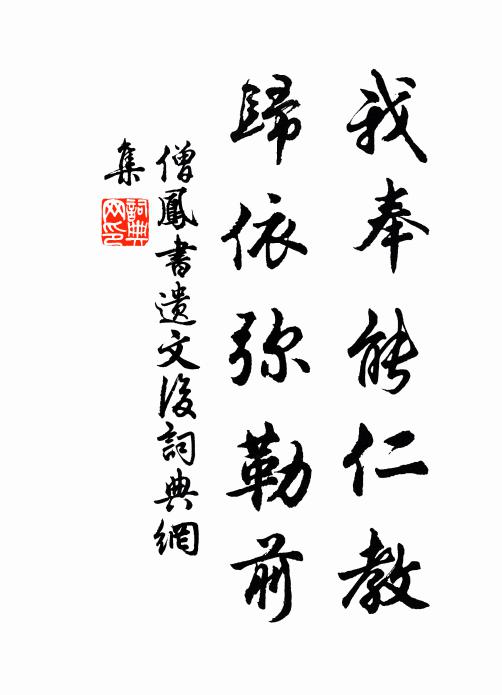 我奉能仁教
歸依弥勒前
僧鳳書遺文後詞典網
集
詞典
网印